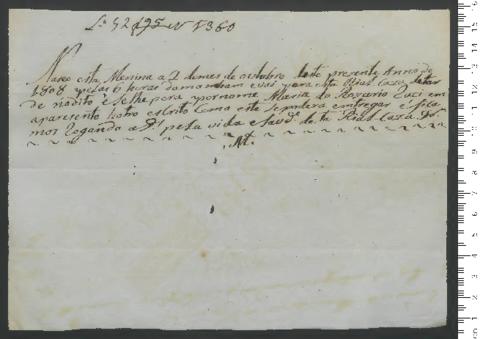 Lº 52 f 95 v N 1360
Naseo esta Menina a 2 domes de outubro deste prezente Anno de
1808 pelas 6 horas damanham e vai para esta Rial Caza
de nàoito e selhe pora pornome Maria do Rozario em
aparesento outro escrito Como este sepodera entregar e fica
mos Rogando a Ds pela vida e Saude de ta Rial Caza